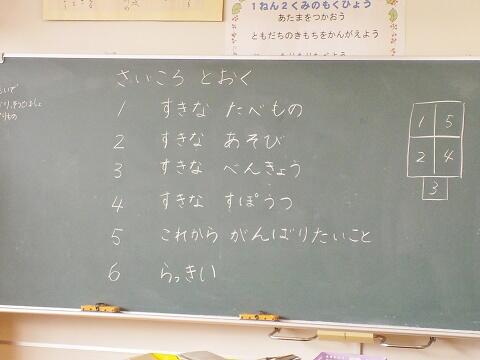 1ねん2くみのもくひょう
あたまをつかおう
ともだちのきもちをかんがえよう
さいころ とおく
1 すきな たべもの
2 すきな あそび
3 すきな べんきょう
4 すきな すぽうつ
5 これから がんばりたいこと
6 らっきい
1 5
2 4
3